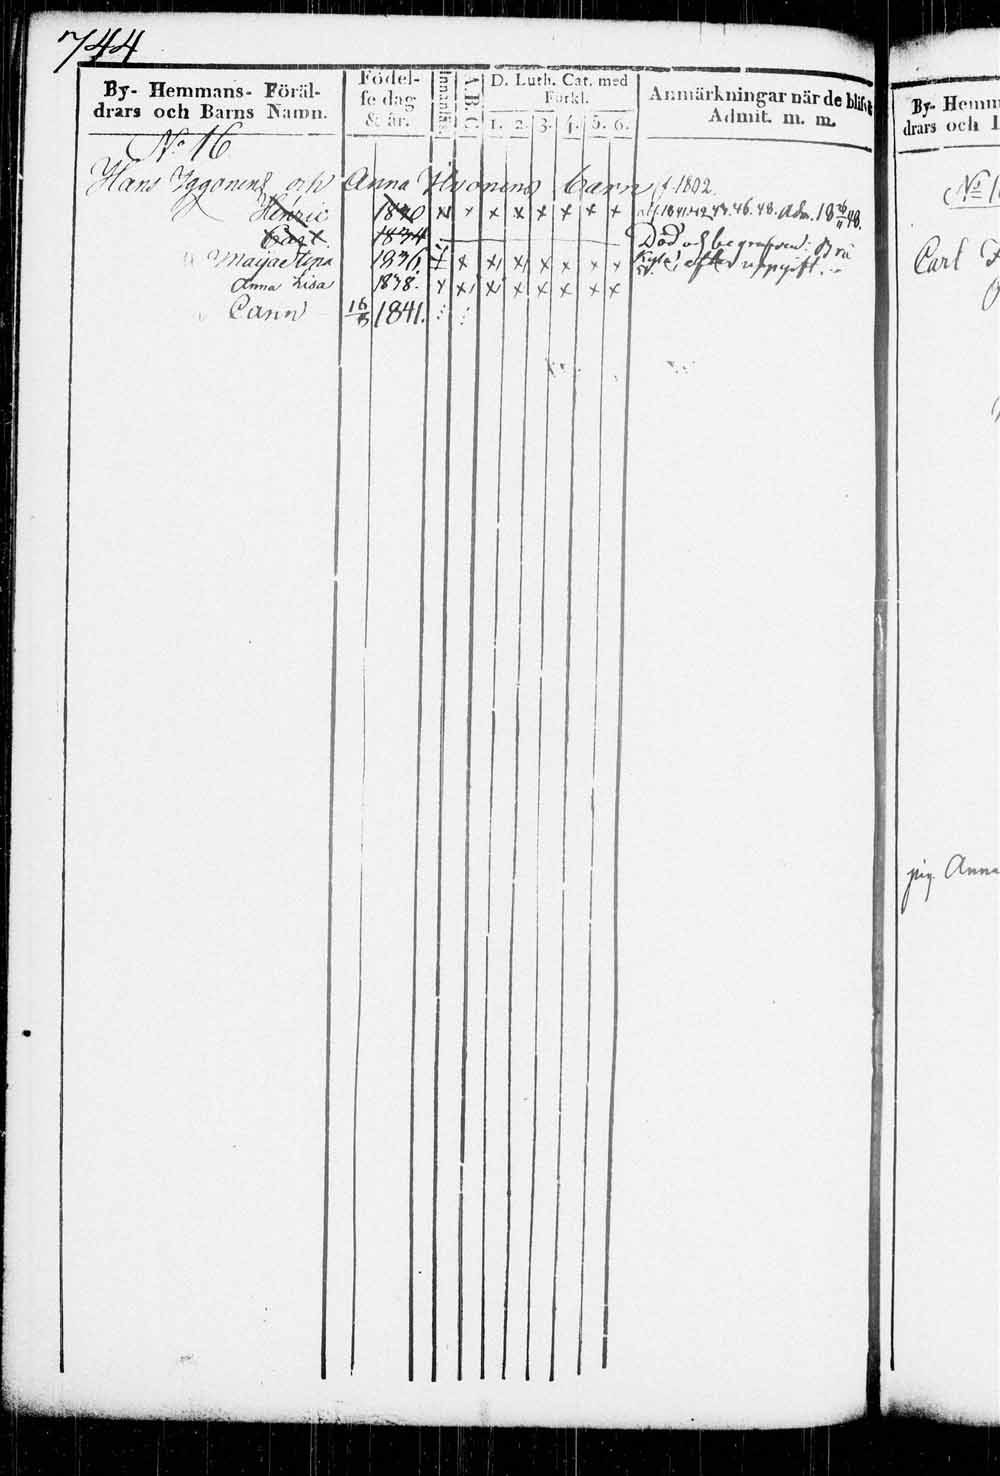 744
By- Hemmans- Föräl-
drars och Barns Namn.
Födel-
se dag
& år.
Innanläs.
A.B.C.
D. Luth. Cat. med
Förkl.
1. 2. 3. 4. 5. 6.
Anmärkningar när de blifv
Admit. m. m.
No 16
Hans och Anna Barn f. 1802
Henric 1830 x x x x x x x x 1841.42.44.46.48. Adm. 18 48.
Carl 1834 Död och begrafven:
Maija Stina 1836. x x x x x x x efter uppgift.
Anna Lisa 1838. x x x x x x x x
Carin 16/3 1841.
By- Hemm
drars och
No 1
Carl
pig. Anna